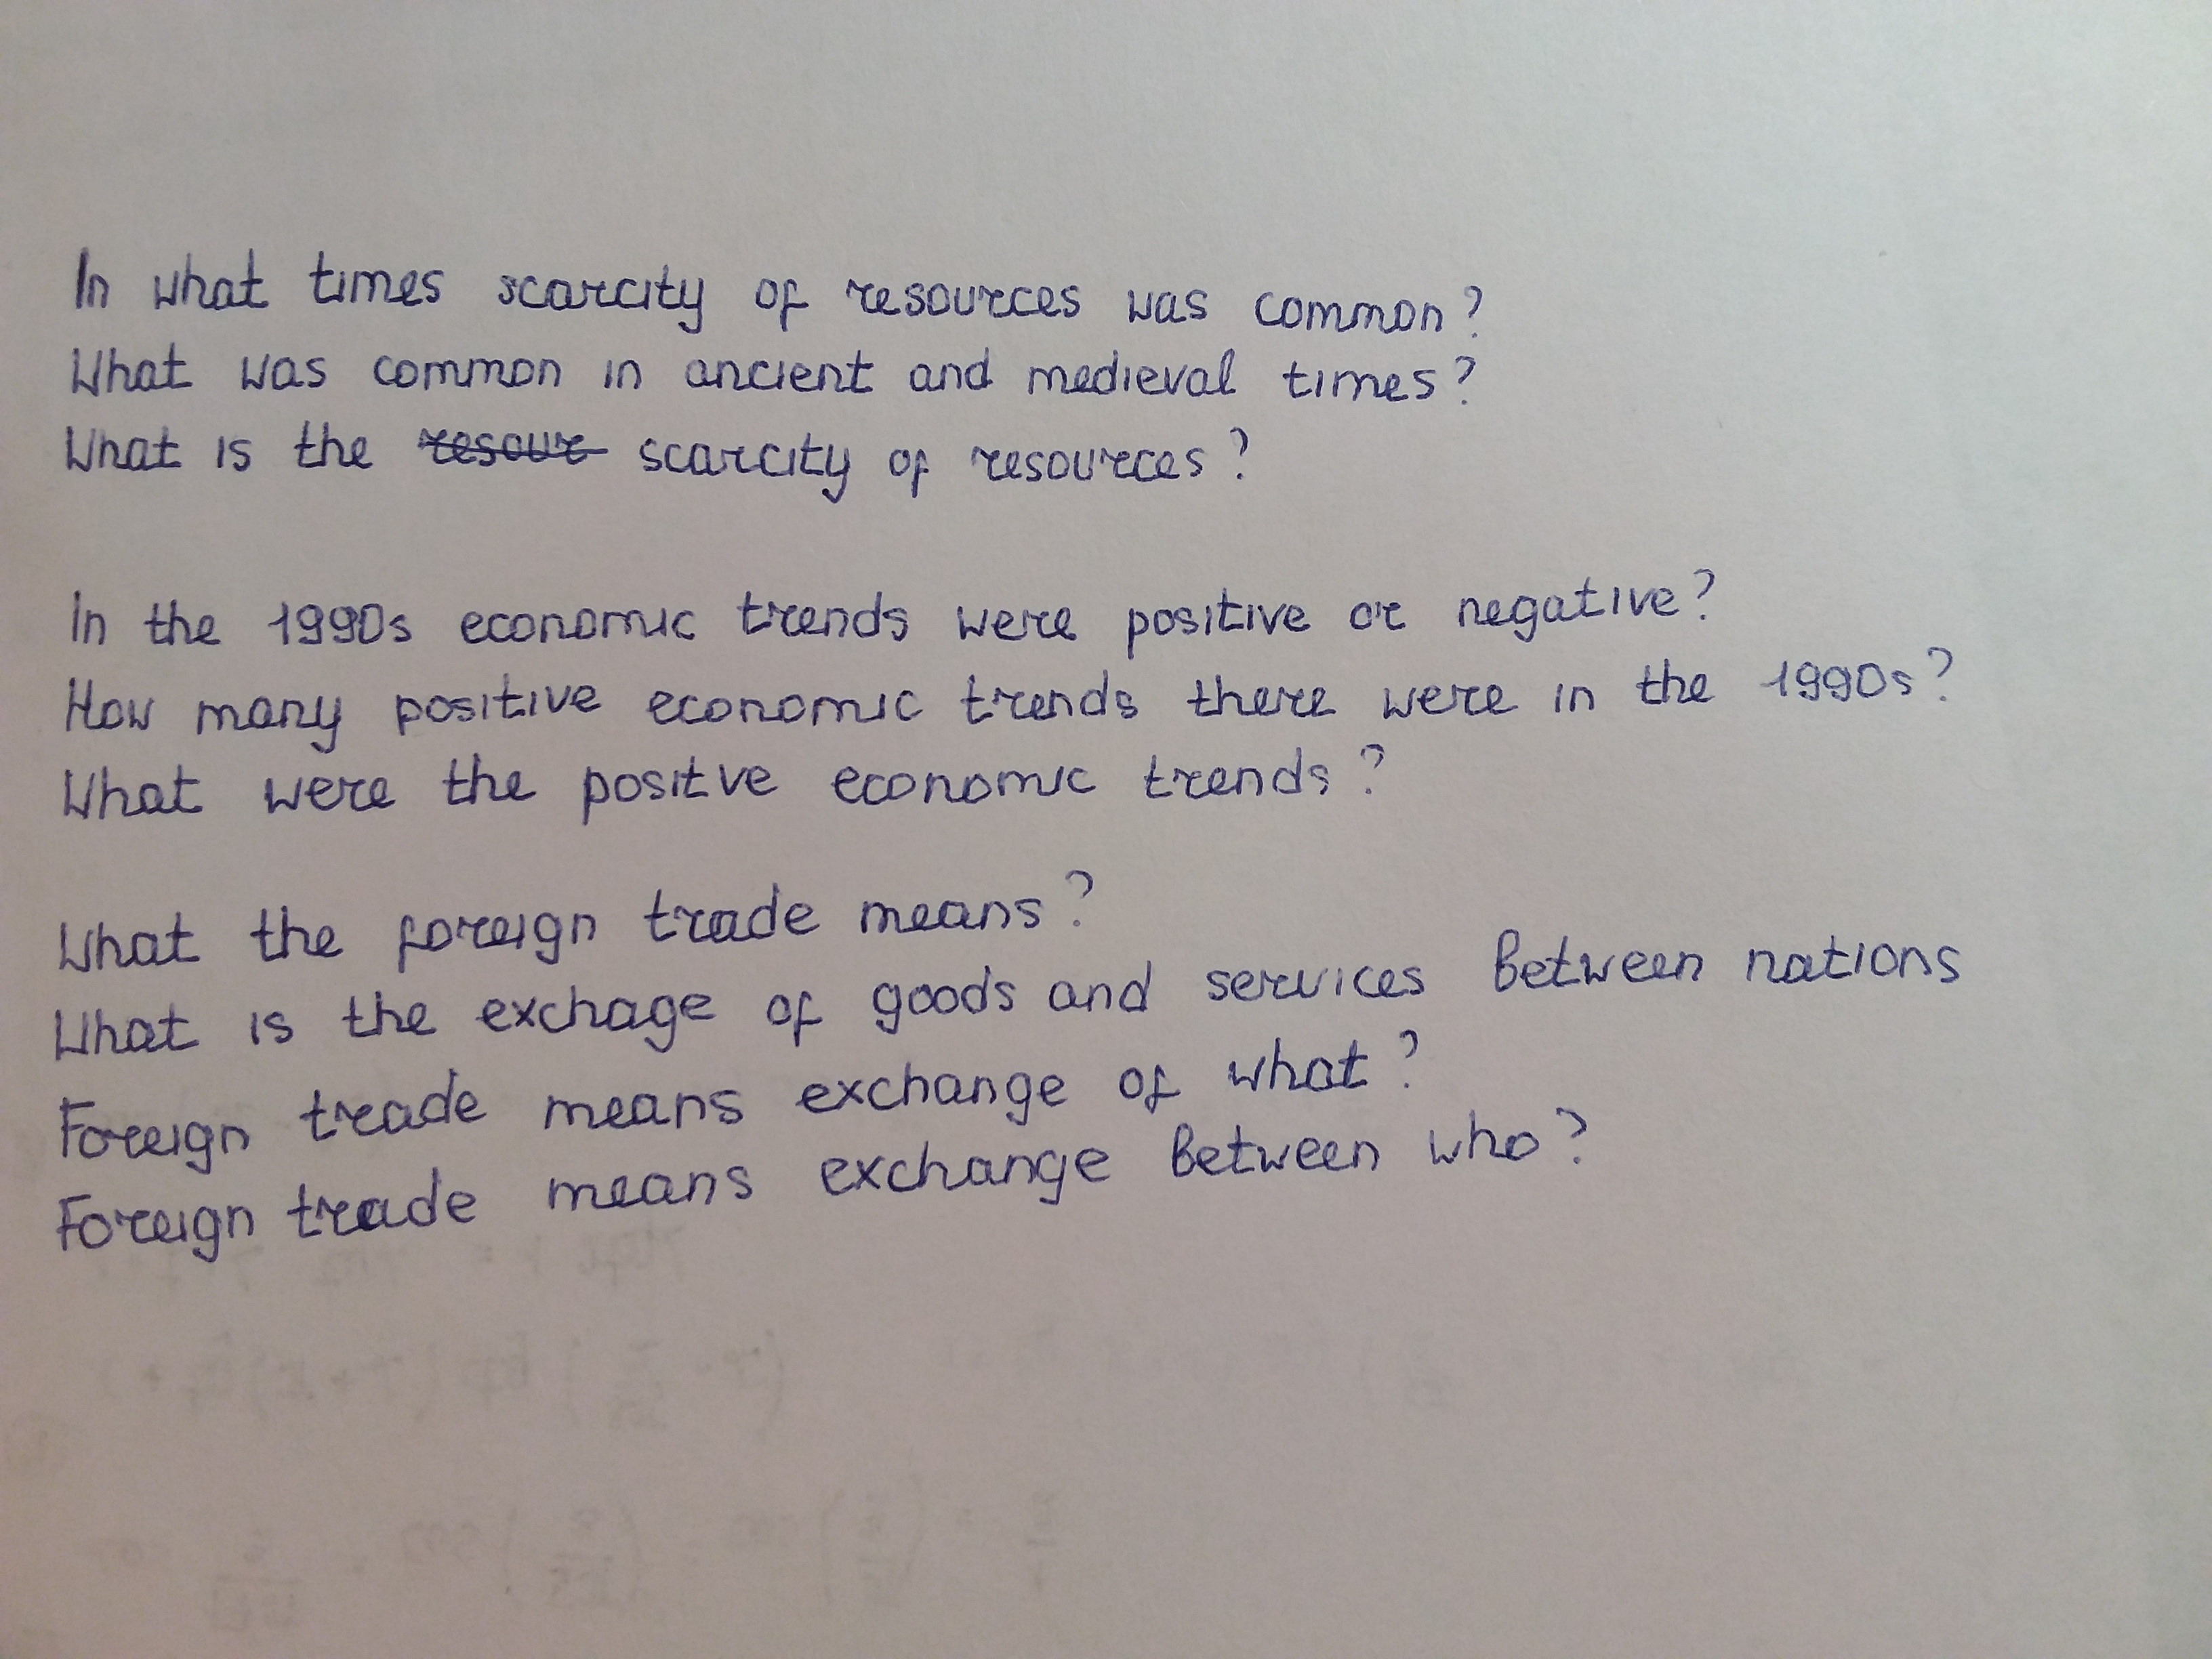 In what times scarcity of resources was common?
What was common in ancient and medieval times?
What is the resour scarcity of resources?
In the 1990s economic trends were positive or negative?
How many positive economic trends there were in the 1990s?
What were the positve economic trends?
What the foreign trade means?
What is the exchage of goods and services between nations
Foreign trade means exchange of what?
Foreign trade means exchange between who?